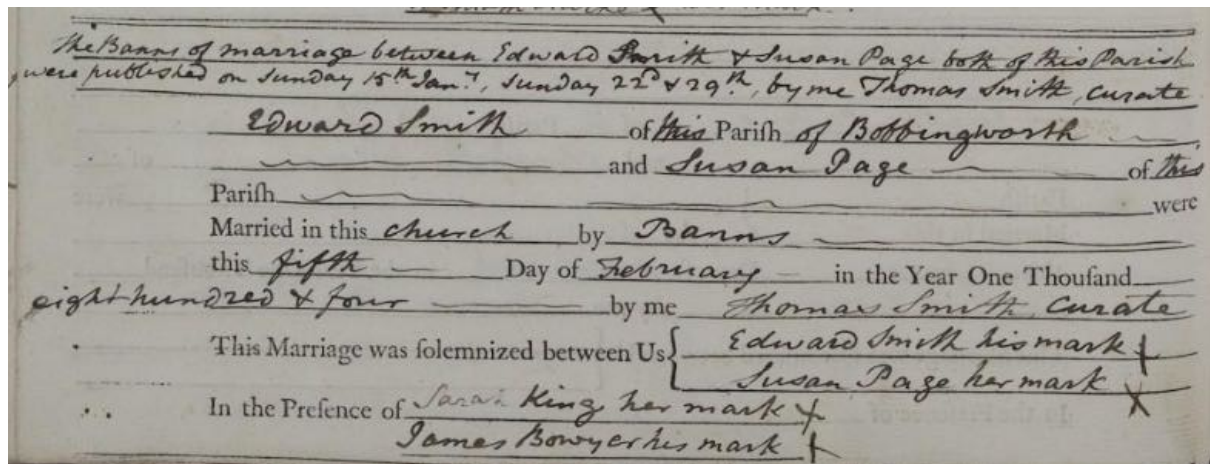 The Banns of marriage between Edward Smith & Susan Page both of this Parish
were published on Sunday 15th Jany, Sunday 22d & 29th, by me Thomas Smith, curate
Edward Smith of this Pariſh of Bobbingworth
and Susan Page of this
Pariſh were
Married in this church by Banns
this fifth Day of February in the Year One Thouſand
eight hundred & four by me Thomas Smith, Curate
This Marriage was ſolemnized between Us { Edward Smith his mark +
Susan Page her mark X
In the Preſence of Sarah King her mark +
James Bowyer his mark +